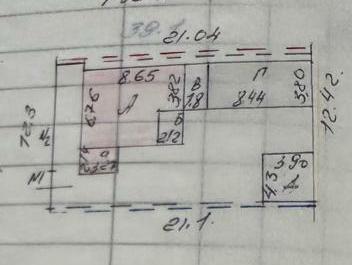 21.04
8.65
3.82
В
1.8
П
8.44
3.80
6.76
А
Б
2.12
12.3
12.42
а
М1
3.90
4.3
А
21.1.